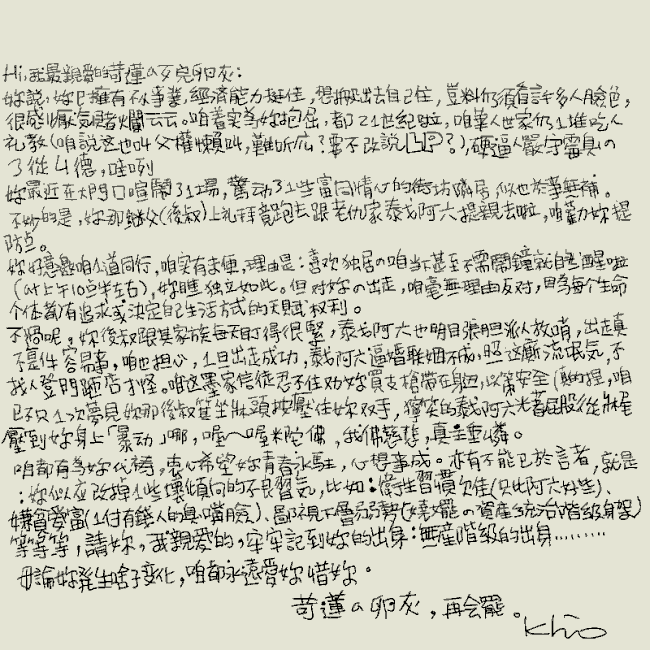 Hi,我最親愛的苛蓮a歹兒卵灰:
妳說,妳已擁有不小事業,經濟能力挺佳,想搬出去自己住,豈料仍須看許多人臉色,
很感慨氣者爛云云。咱著实為妳抱屈,都21世紀啦,咱華人世家仍1堆吃人
礼教(咱説这也叫父權懶叫,難听広?要不改説LP?),硬逼人嚴守
3從4德,哇咧
妳最近在大門口喧鬧了1場,驚动了1些富同情心的街坊隣居,似也於事無補。
不妙的是,妳那繼父(後叔)上礼拜竟跑去跟老仇家泰戈阿六提親去啦,咱勸妳提
防点。
妳好意邀咱1道同行,咱实有未便,理由是:喜欢独居の咱当下甚至不需鬧鐘就自己醒啦
(at上午10点半左右),妳瞧独立如此。但对妳の出走,咱毫無理由反对,因為每个生命
个体都有追求或決定自己生活方式的天賦权利。
不過呢,妳後叔跟其家族每天盯得很緊,泰戈阿六也明目張胆派人放哨,出走真
不是件容易事,咱也担心,1旦出走成功,泰戈阿六逼婚联姻不成,照这廝流氓気,不
找人登門砸店才怪。咱这墨家信徒忍不住劝妳買支槍帶在身边,以策安全(真的捏,咱
已不只1次夢見妳那後叔筐坐牀頭按壓住妳双手,獰笑的泰戈阿六光著屁股從牀尾
壓到妳身上「暴动」哪,喔~喔米陀佛,我佛慈悲,真主垂憐。
咱都有為妳代禱,衷心希望妳青春永駐,心想事成。亦有不能已於言者,就是
:妳似应改掉1些壞傾向的不良習気,比如:衛生習慣欠佳(只比阿六好些)、
嫌貧愛富(1付有錢人的臭嘴臉)、鄙視下層弱勢(擺の資產統治階級身架)
等等等,請妳,我親愛的,牢牢記到妳的出身:無産階級的出身………
毋論妳発生啥子变化,咱都永遠愛妳惜妳。
苛蓮a卵灰,再会罷。
Khio